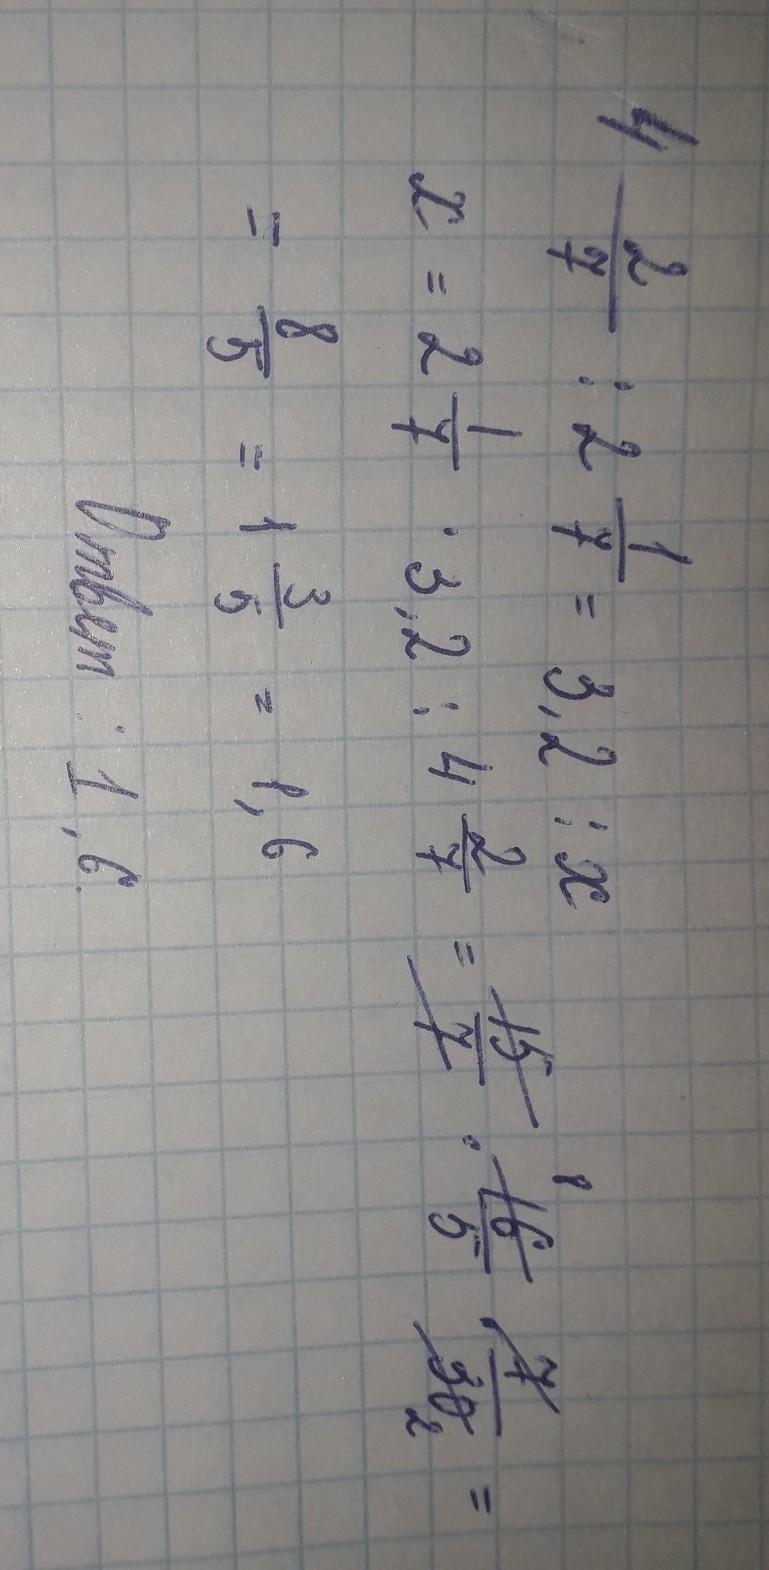 4 2/7 : 2 1/7 = 3,2 : x
x = 2 1/7 · 3,2 : 4 2/7 = 15/7 · 16/5 · 7/30 =
8
2
= 8/5 = 1 3/5 = 1,6
Ответ : 1,6.